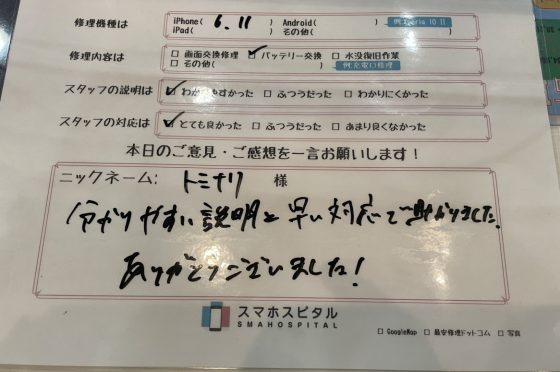 修理機種は
iPhone( 6, 11 ) Android( ) 例:Xperia 10 II
iPad( ) その他( )
修理内容は
□ 画面交換修理 ☑ バッテリー交換 □ 水没復旧作業
□ その他( ) 例:充電口修理
スタッフの説明は ☑ わかりやすかった □ ふつうだった □ わかりにくかった
スタッフの対応は ☑ とても良かった □ ふつうだった □ あまり良くなかった
本日のご意見・ご感想を一言お願いします!
ニックネーム: トミナリ 様
分かりやすい説明と早い対応で助かりました。
ありがとうございました!
スマホスピタル
SMAHOSPITAL
□ GoogleMap □ 最安修理ドットコム □ 写真